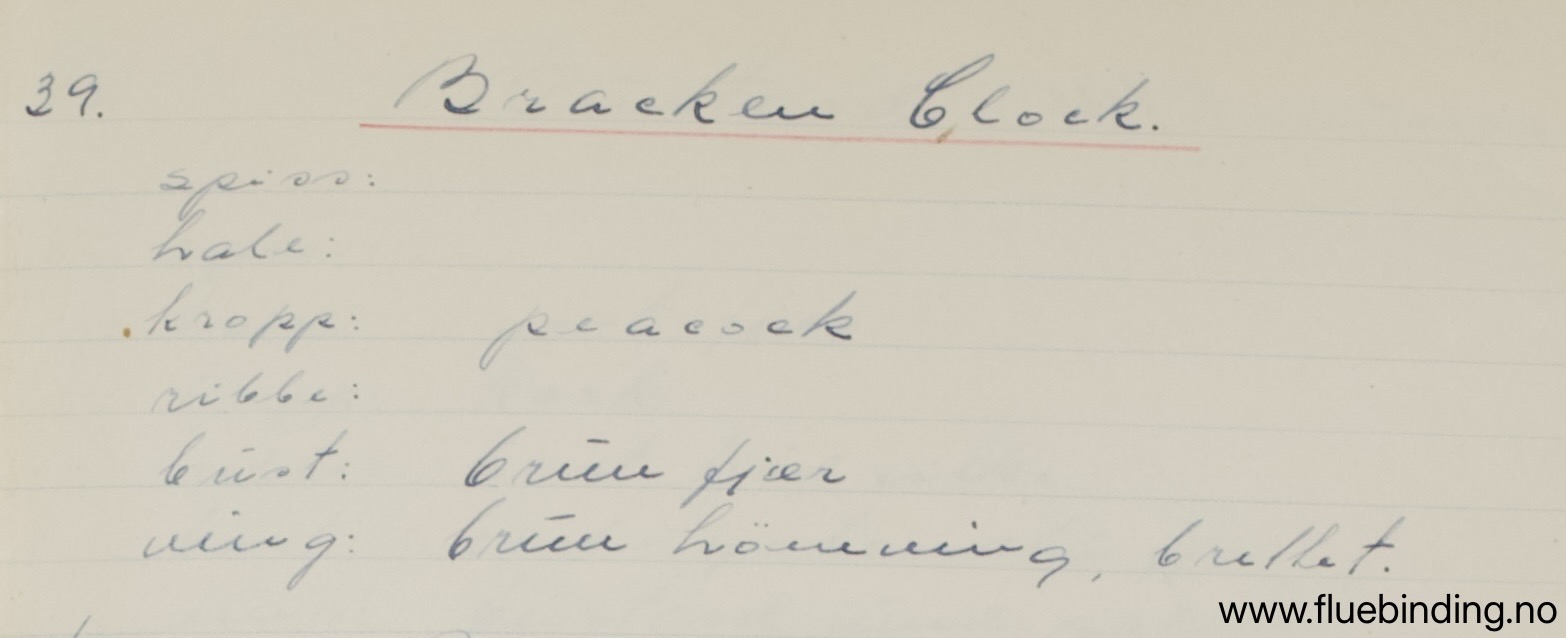 39. Bracken Clock.
spiss:
hale:
kropp: peacock
ribbe:
bust: brun fjær
ving: brun hönving, brettet.
www.fluebinding.no